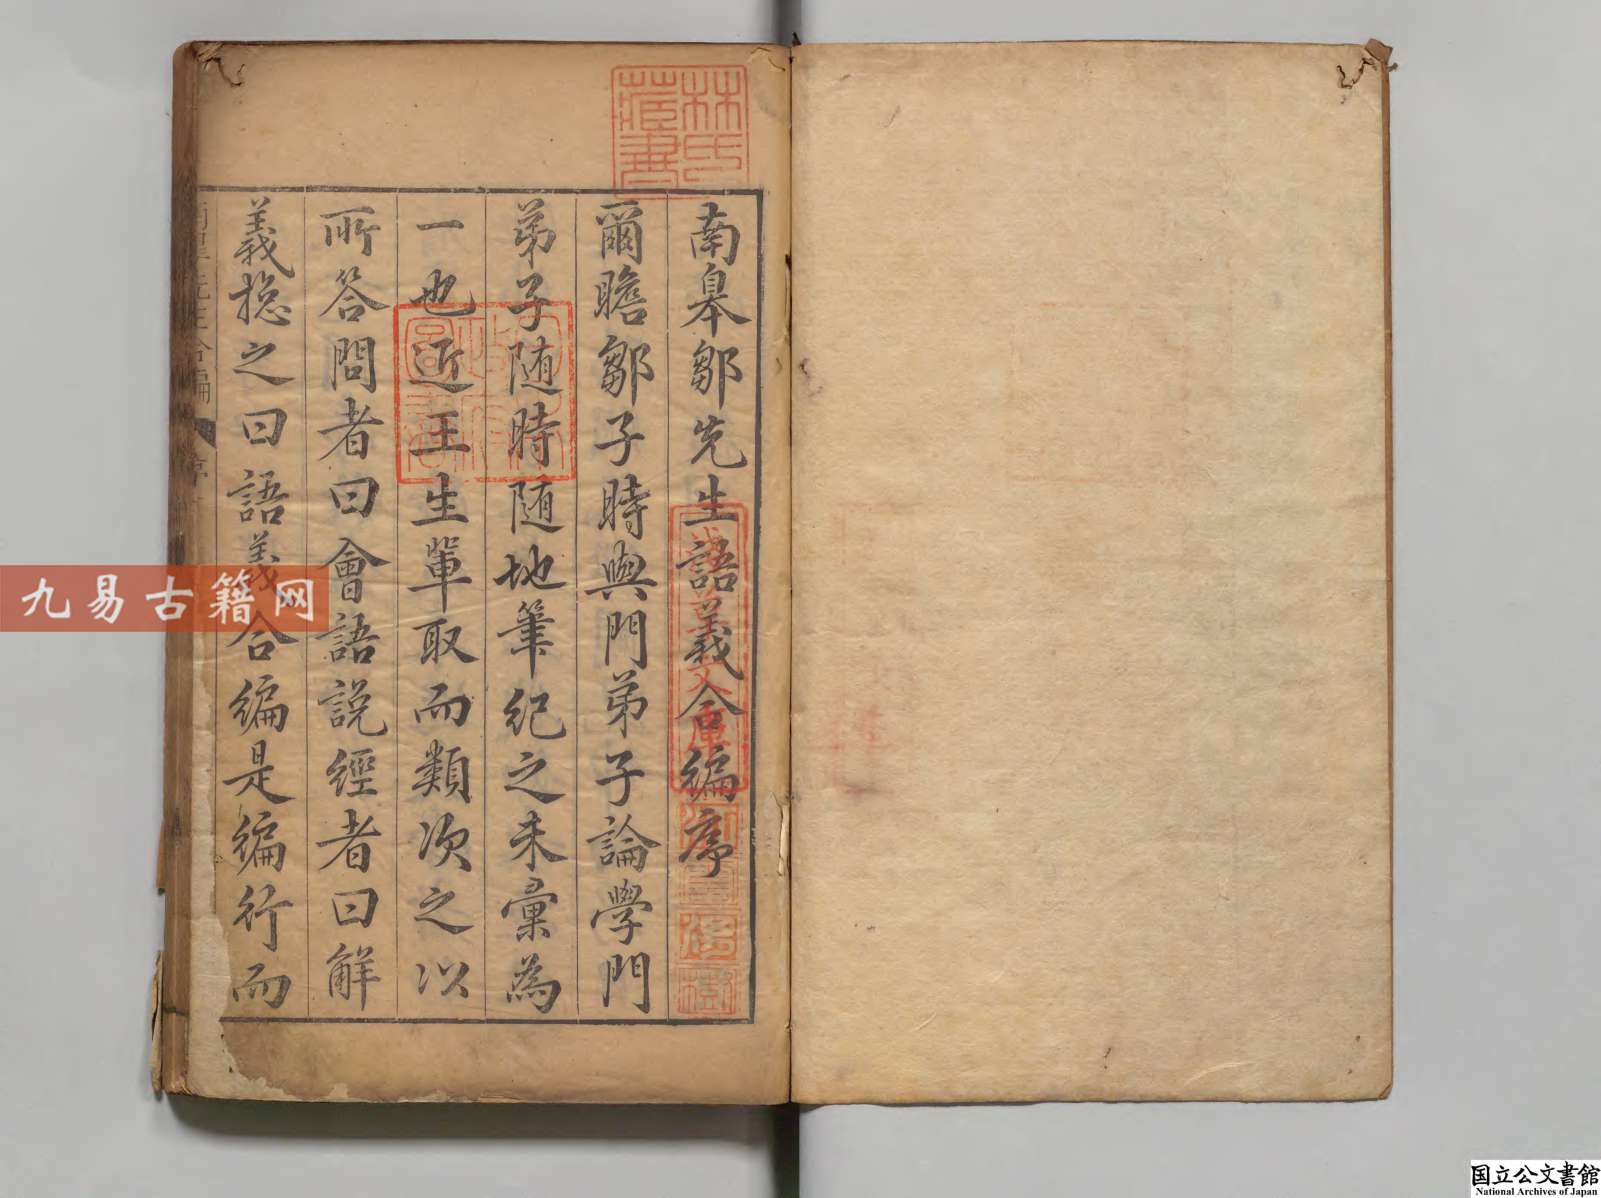 南皋鄒先生語義合編序
爾瞻鄒子時與門弟子論學門
弟子随時随地筆紀之未彙為
一也近王生輩取而類次之以
所答問者曰會語說經者曰解
義捴之曰語義合編是編行而
林氏
藏書
九易古籍网
国立公文書館
National Archives of Japan